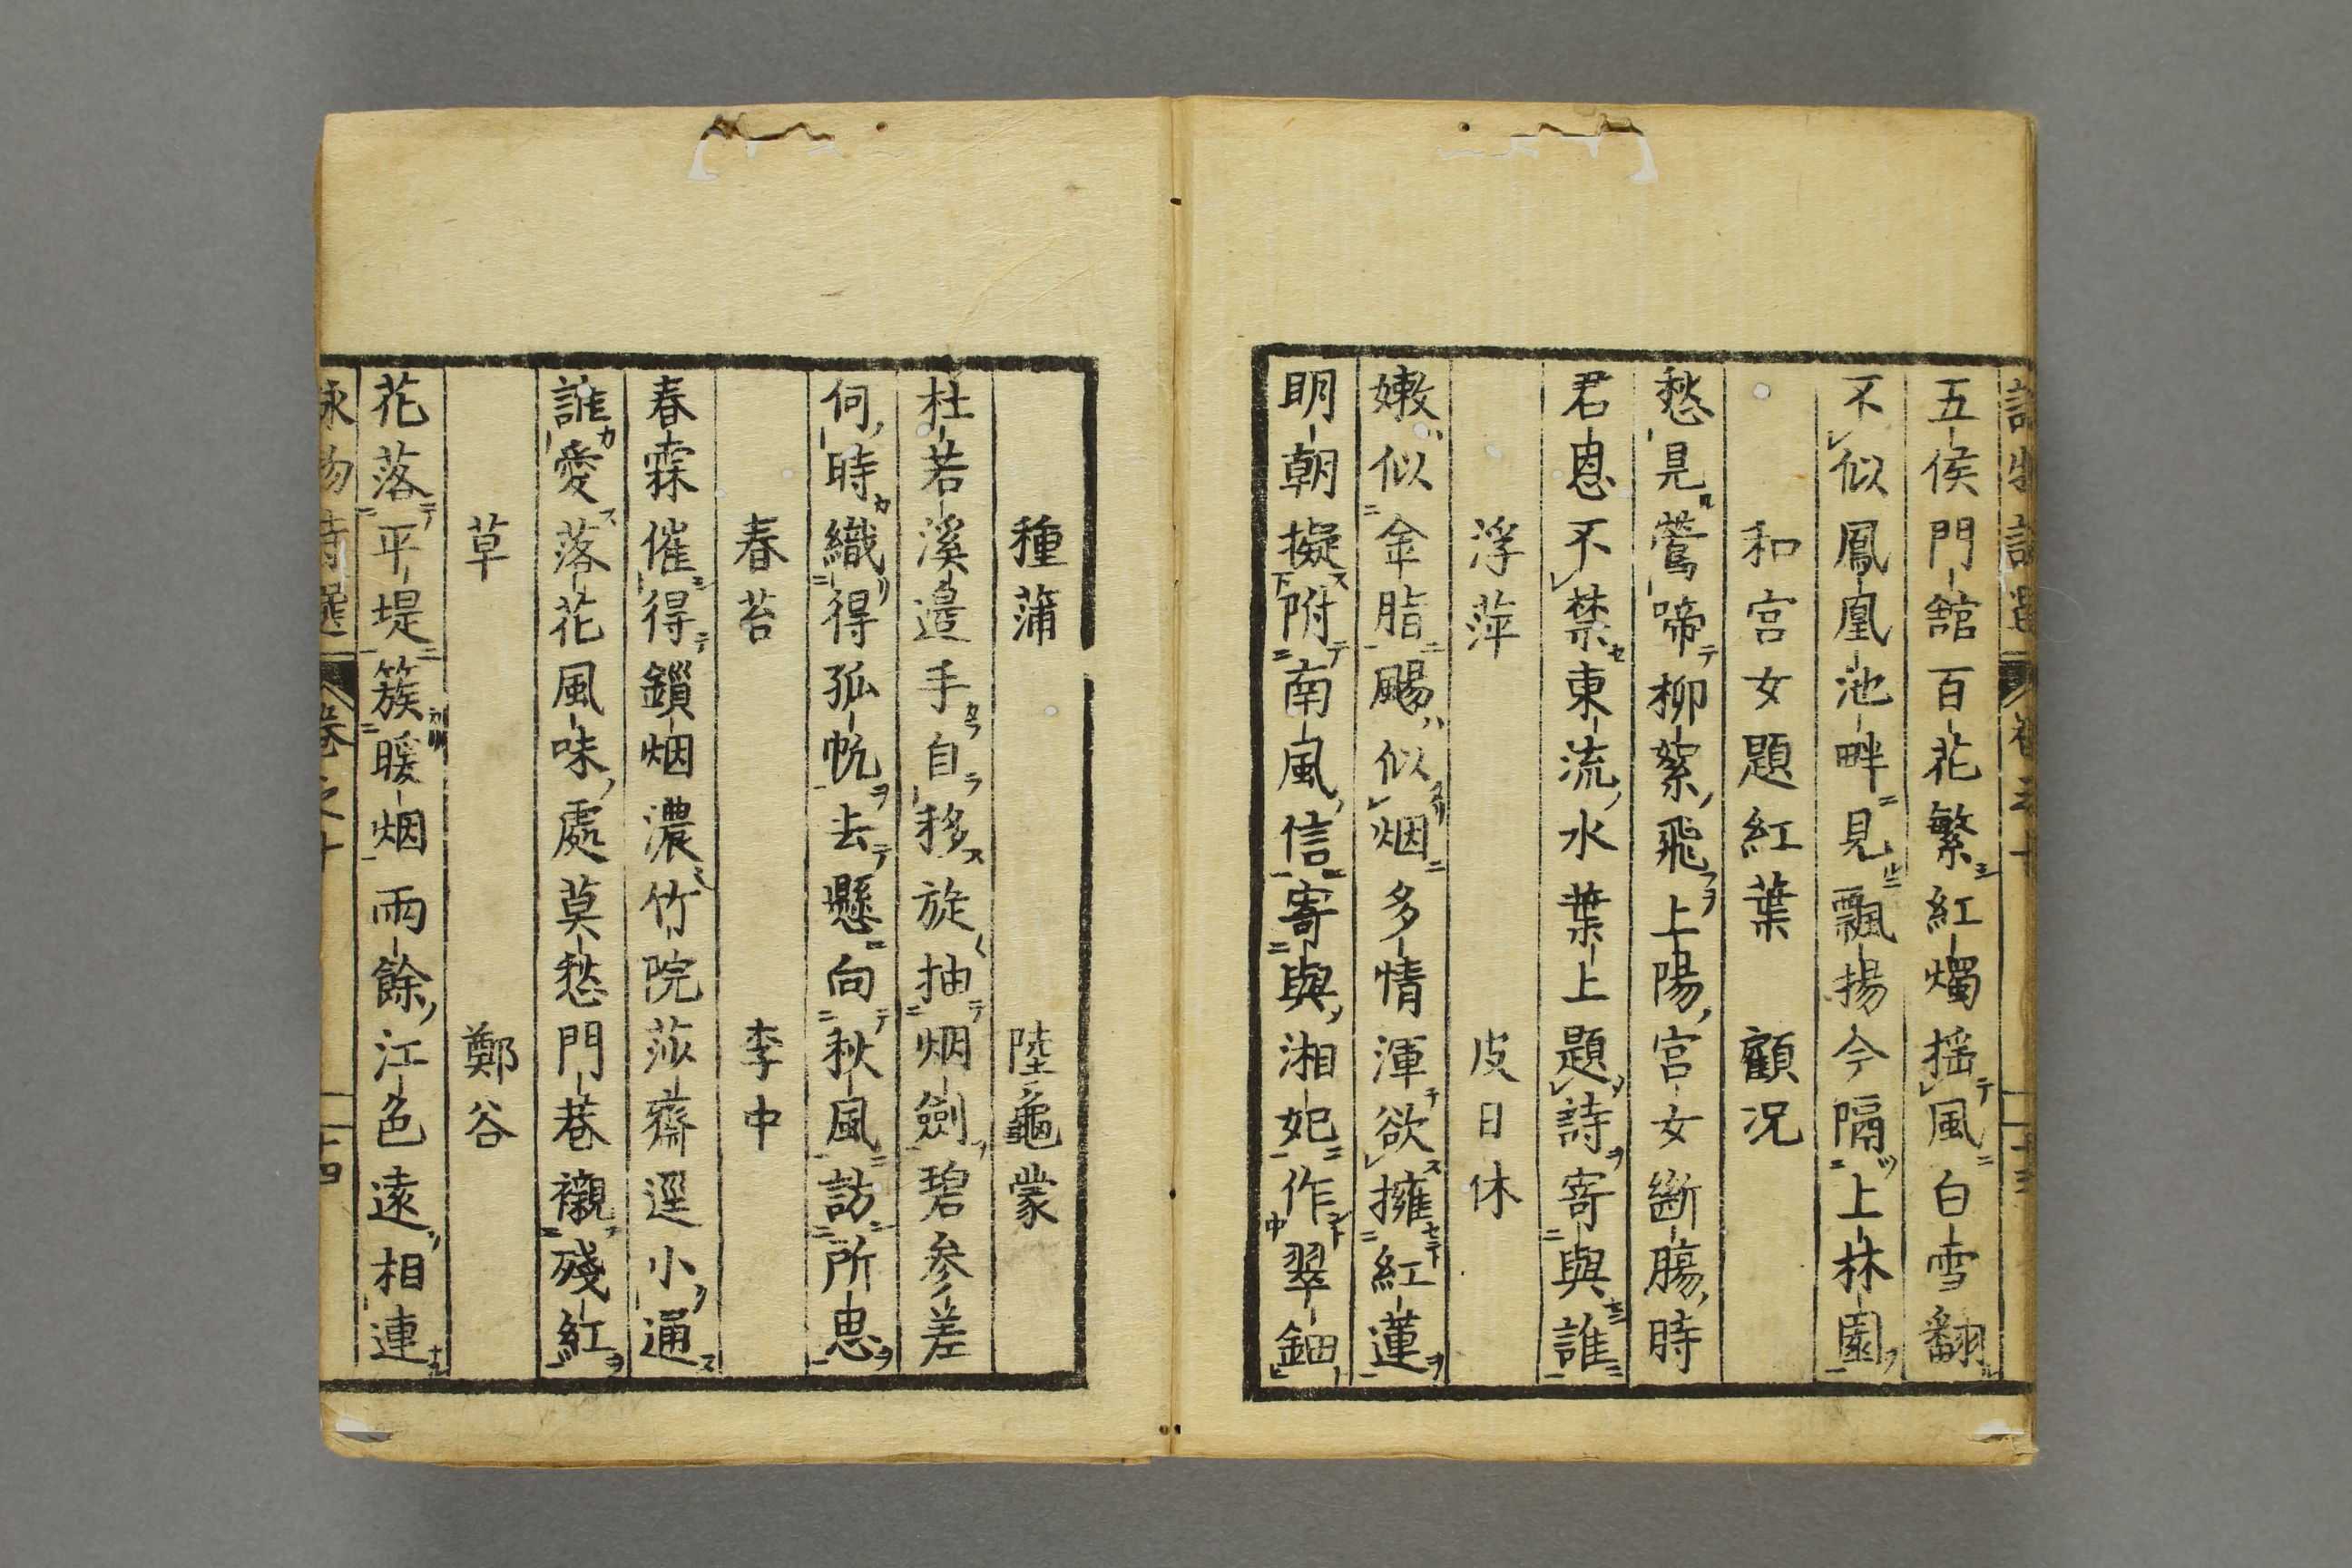 五侯門館百花繁紅燭揺風白雪翻
不似鳳凰池畔見飄揚今隔上林園
和宮女題紅葉 顧况
愁見鶯啼柳絮飛上陽宮女斷腸時
君恩不禁東流水葉上題詩寄與誰
浮萍 皮日休
嫩似金脂颺似烟多情渾欲擁紅蓮
明朝擬附南風信寄與湘妃作翠鈿
種蒲 陸龜蒙
杜若溪邊手自移旋抽烟劍碧参差
何時織得孤帆去懸向秋風訪所思
春苔 李中
春霖催得鎖烟濃竹院莎齋逕小通
誰愛落花風味處莫愁門巷襯殘紅
草 鄭谷
花落平堤簇暖烟雨餘江色遠相連
詠物詩選 卷之十 十四